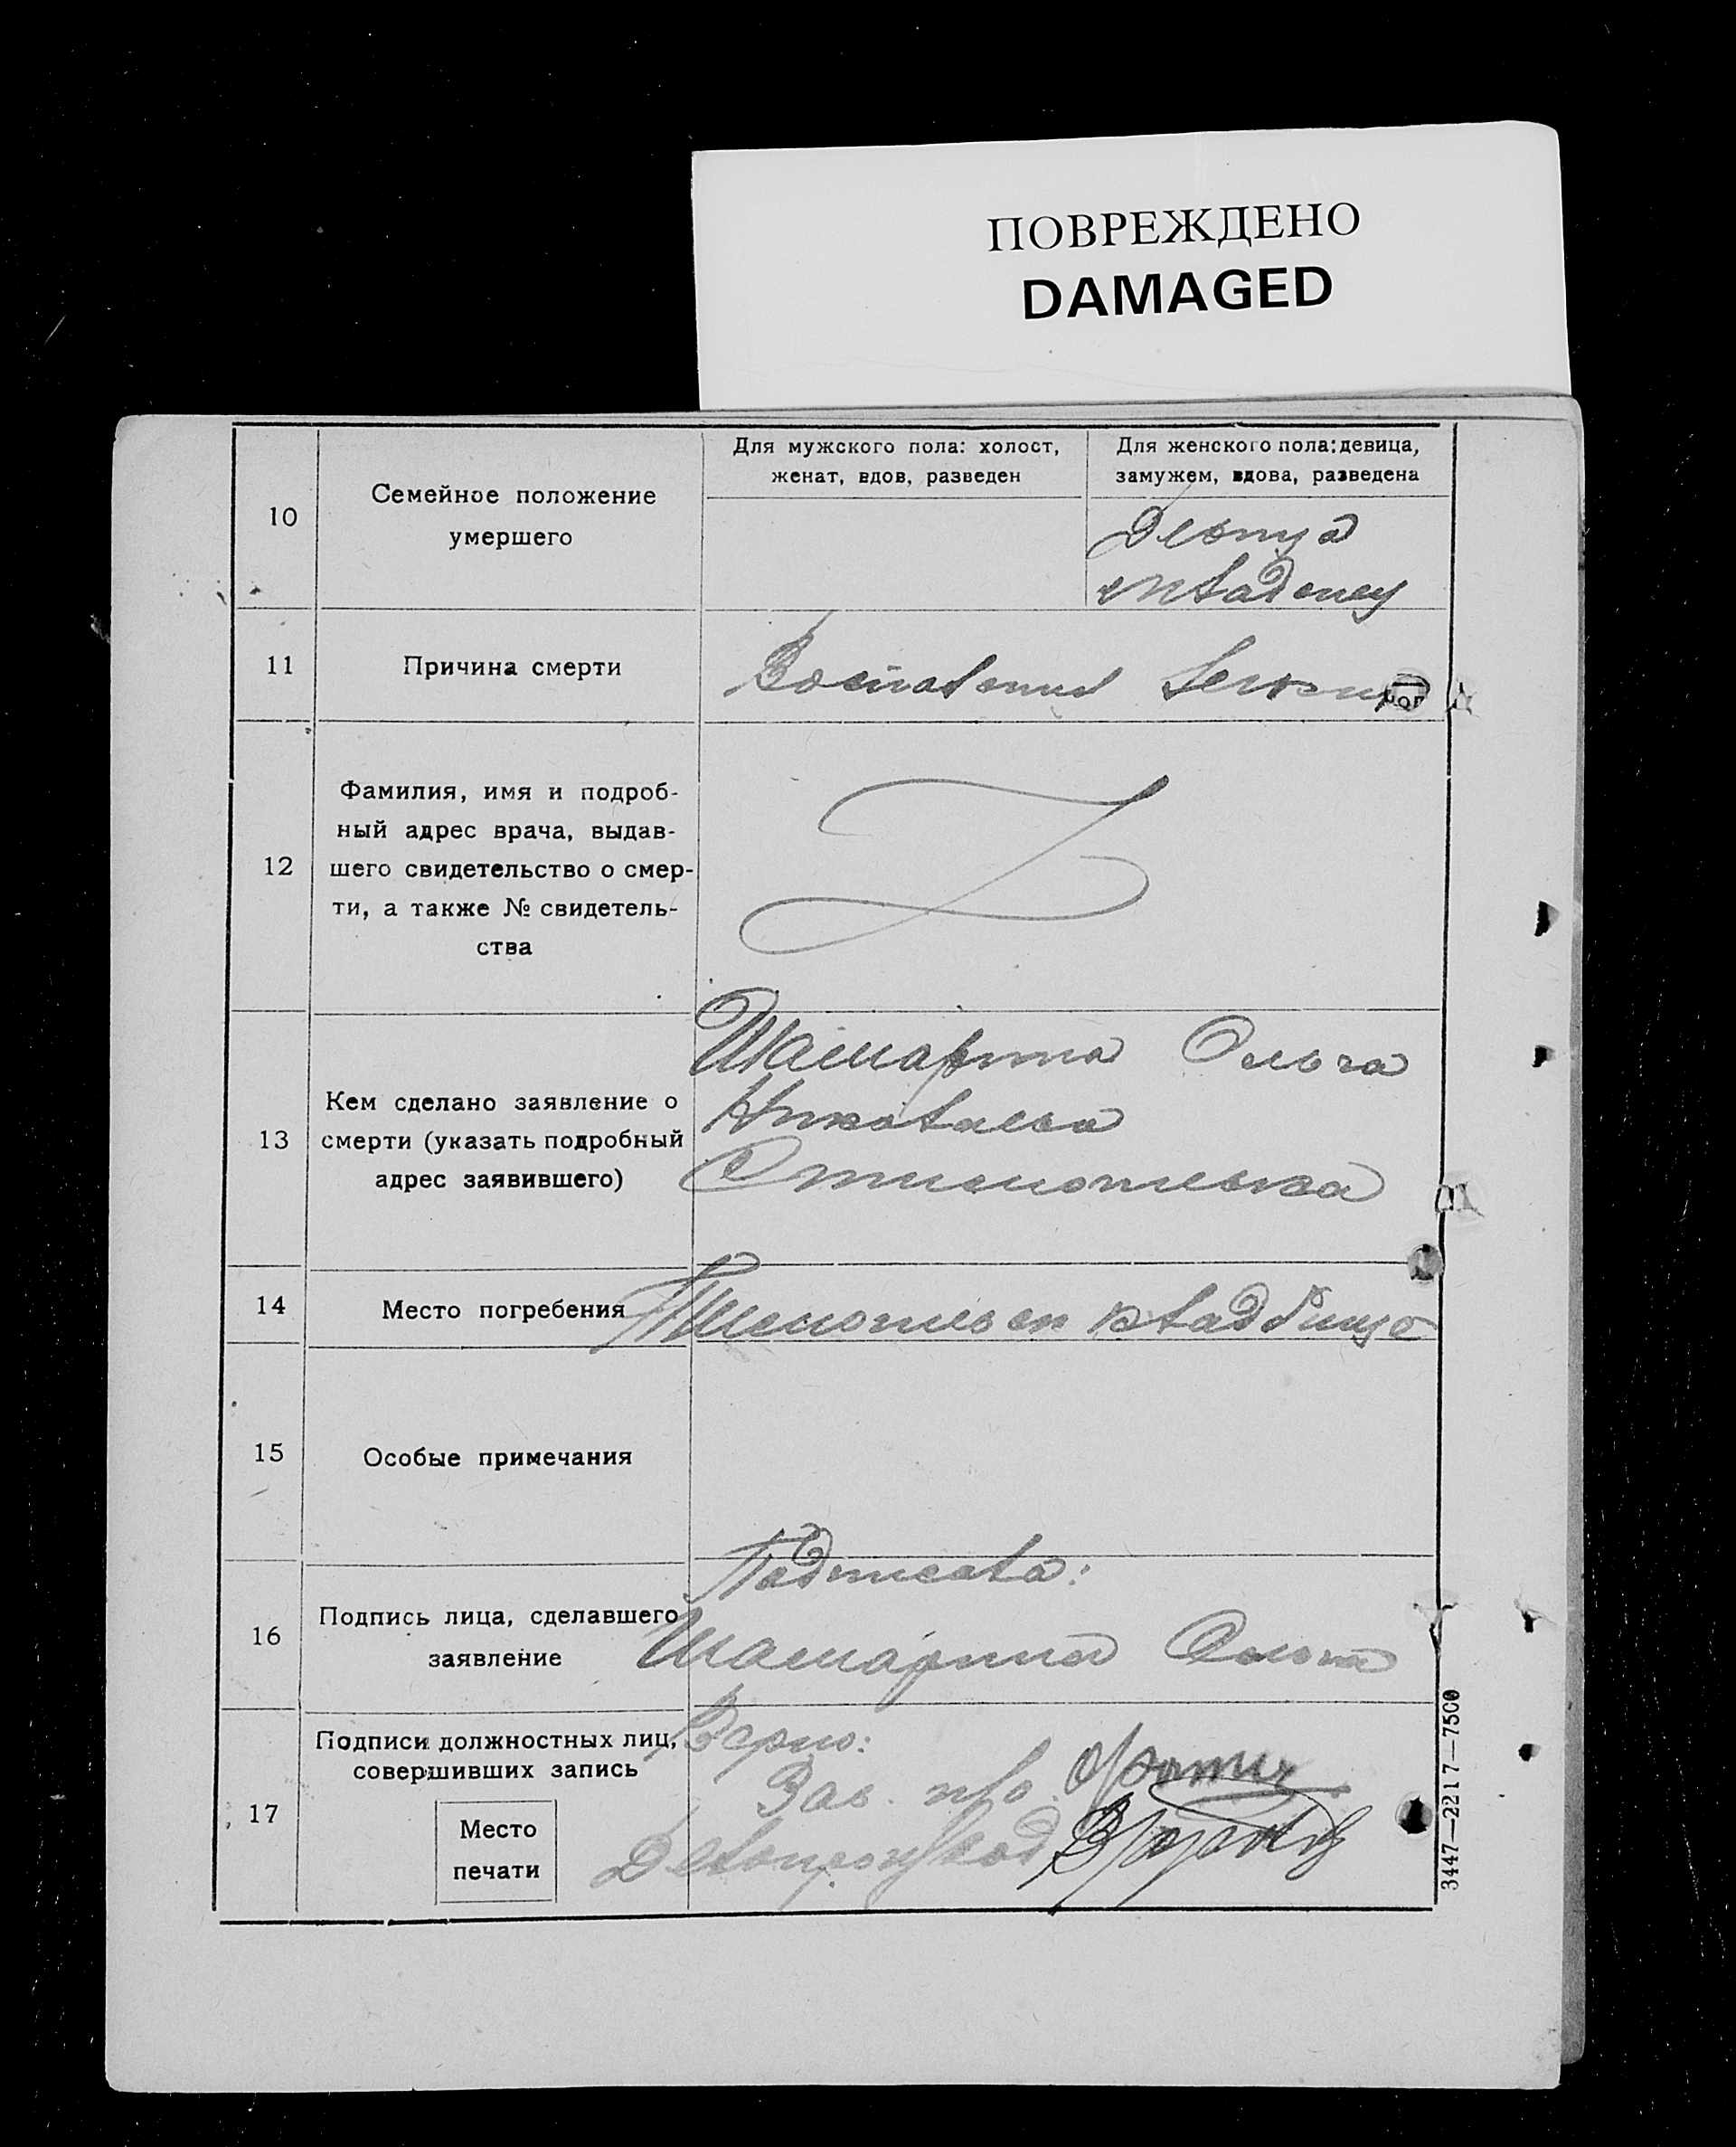 ПОВРЕЖДЕНО
DAMAGED
10
Семейное положение
умершего
Для мужского пола: холост,
женат, вдов, разведен
Для женского пола: девица,
замужем, вдова, разведена
Девица
младенец
11
Причина смерти
Воспаление легких
12
Фамилия, имя и подроб-
ный адрес врача, выдав-
шего свидетельство о смер-
ти, а также № свидетель-
ства
13
Кем сделано заявление о
смерти (указать подробный
адрес заявившего)
Шамарина Ольга
14
Место погребения
кладбище
15
Особые примечания
16
Подпись лица, сделавшего
заявление
Подписала:
Шамарина Ольга
17
Подписи должностных лиц,
совершивших запись
Место
печати
Верно:
Зав.
Делопроизвод
3447—2217—7500